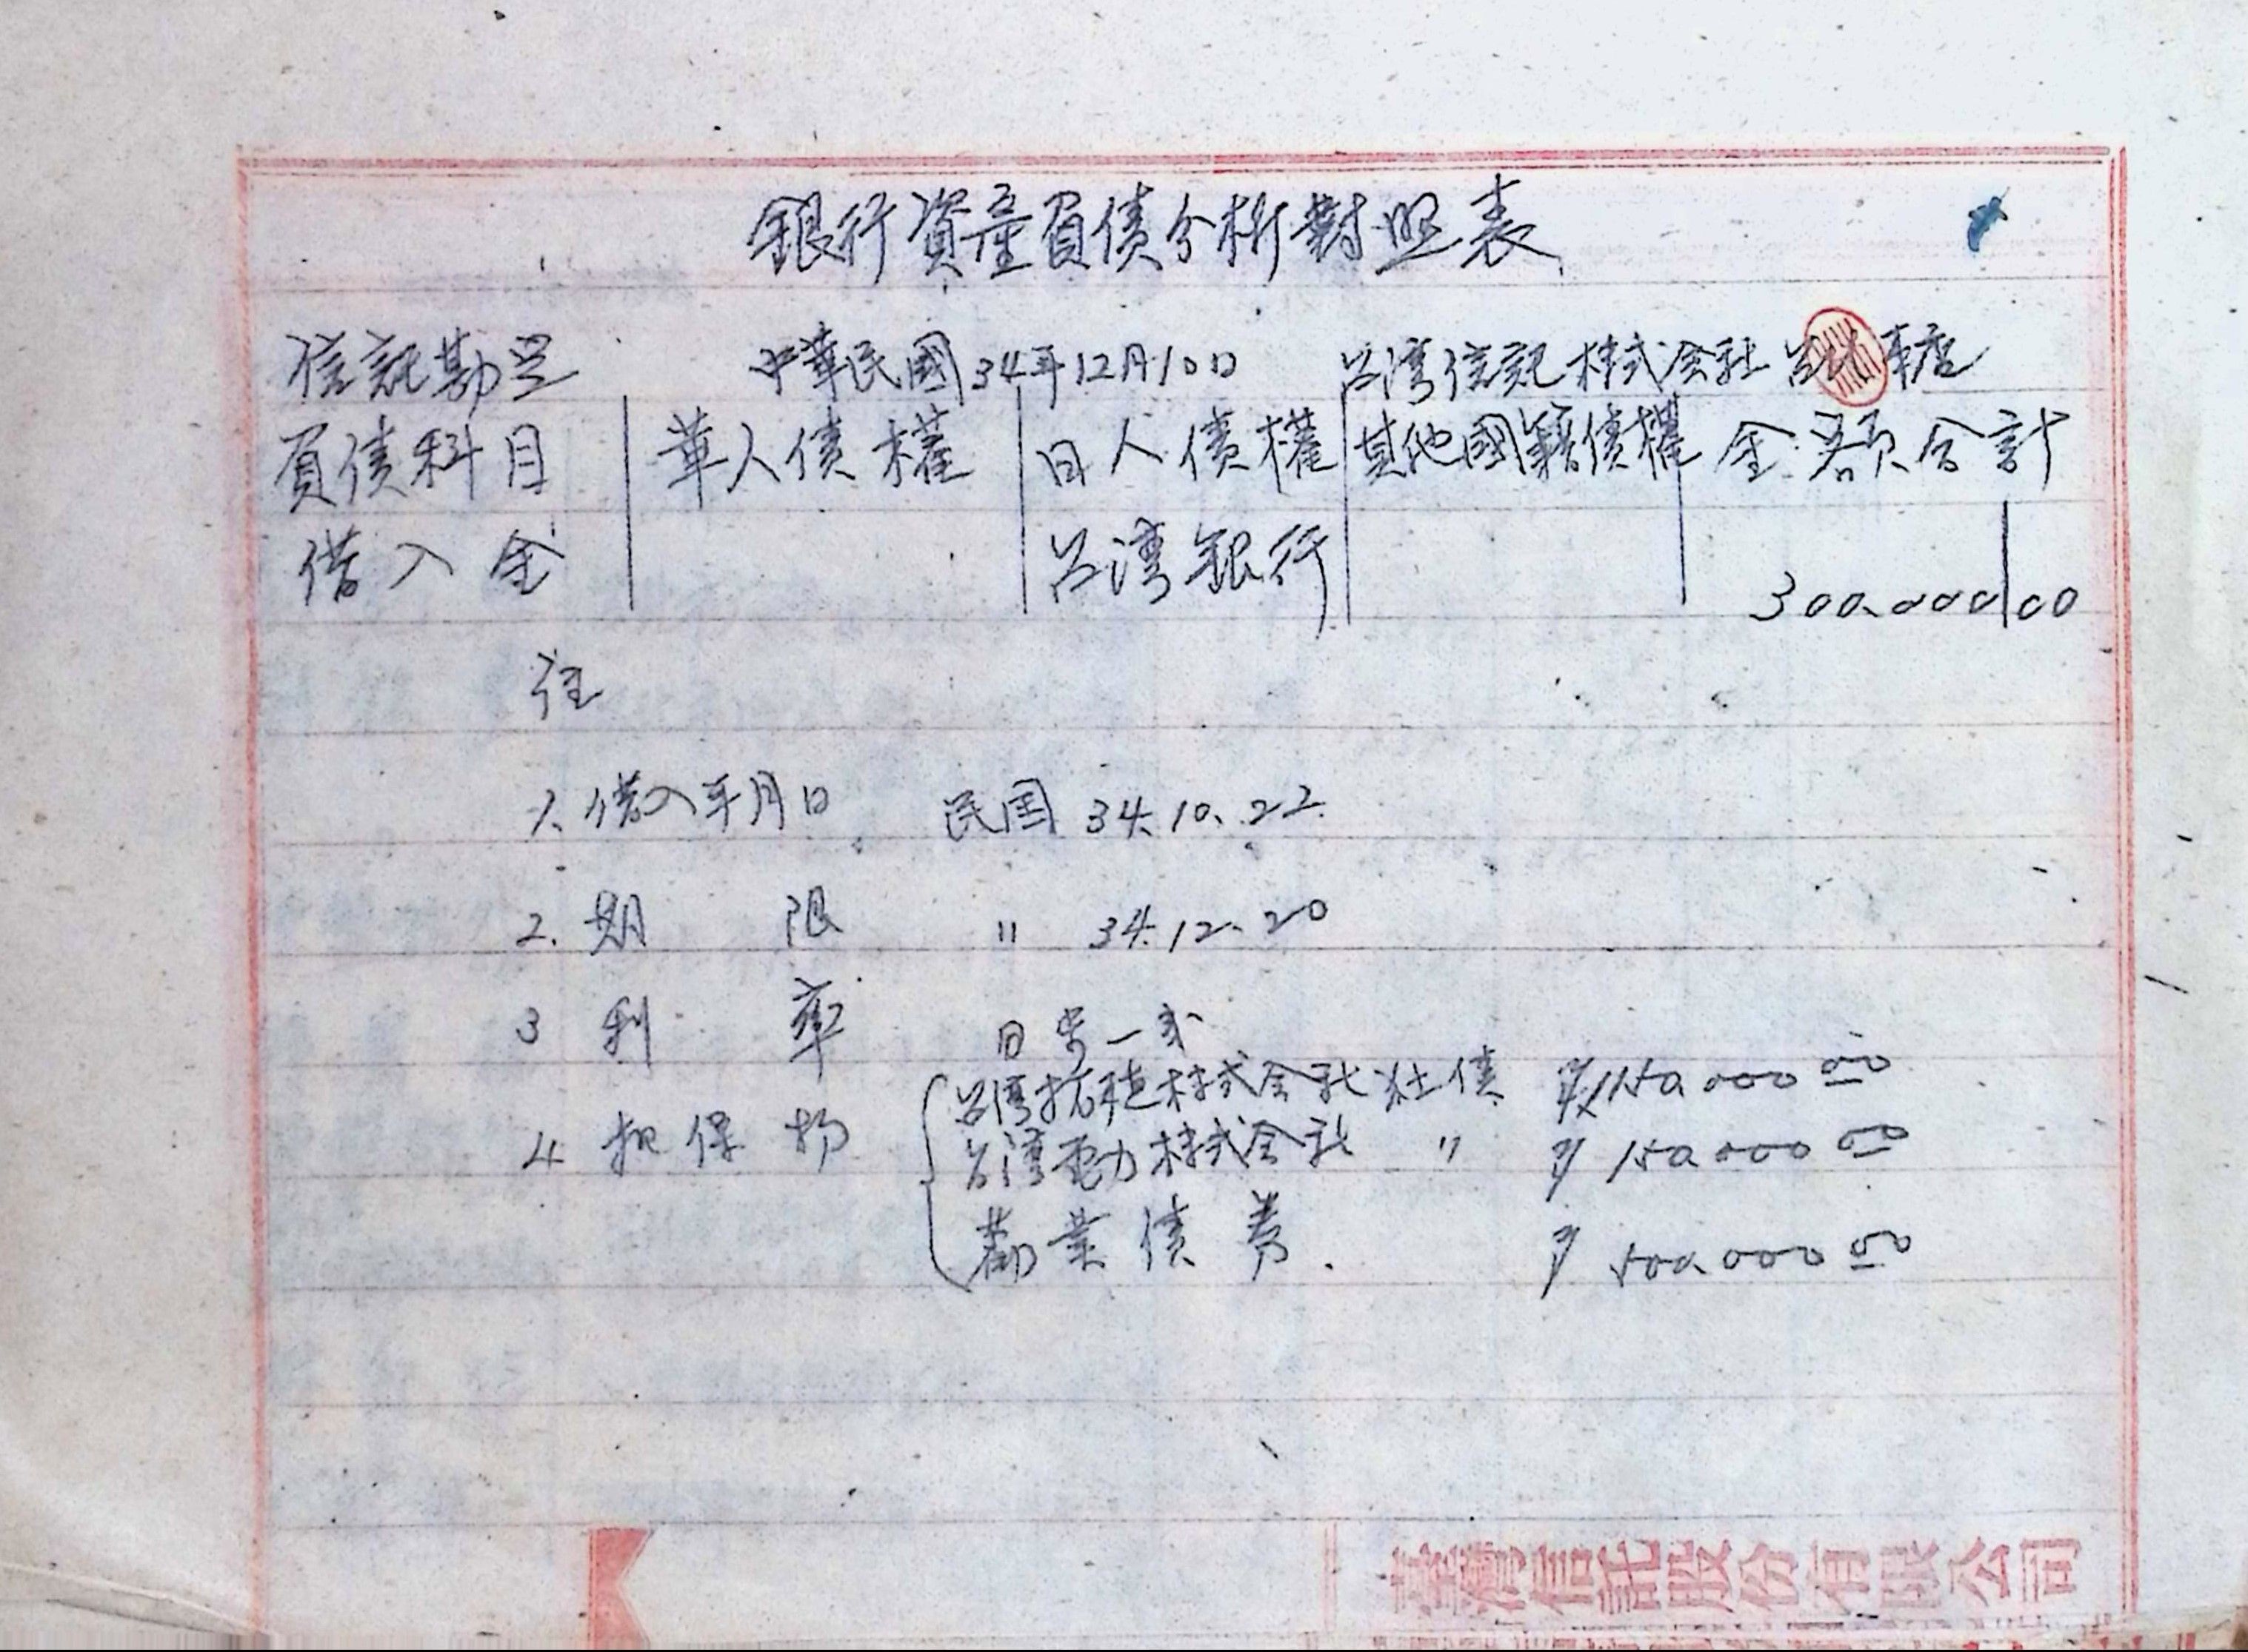 銀行資產負債分析對照表
信託勘定 中華民國34年12月10日 台湾信託株式会社 台北本店
負債科目 華人債權 日人債權 其他國籍債權 金額合計
借入金 台湾銀行 300,000 00
註
1. 借入年月日 民国 34.10.22.
2. 期限 〃 34.12.20
3 利率 日歩一
4 担保物 台湾拓殖株式会社社債 150,000 00
台湾電力株式会社 〃 150,000 00
勸業債券. 500,000 00
臺灣信託股份有限公司